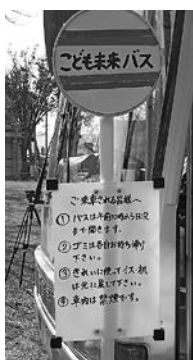 こども未来バス
ご来車される皆様へ
① バスは午前10時から日没
まで開きます。
② ゴミは各自お持ち帰り
下さい。
③ きれいに使ってイス・机
は元に戻して下さい。
④ 車内は禁煙です。